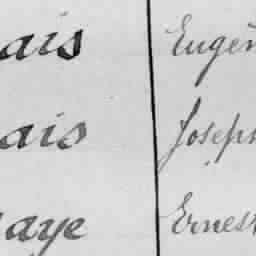 ais Eugèn
ais Joseph
aye Ernest